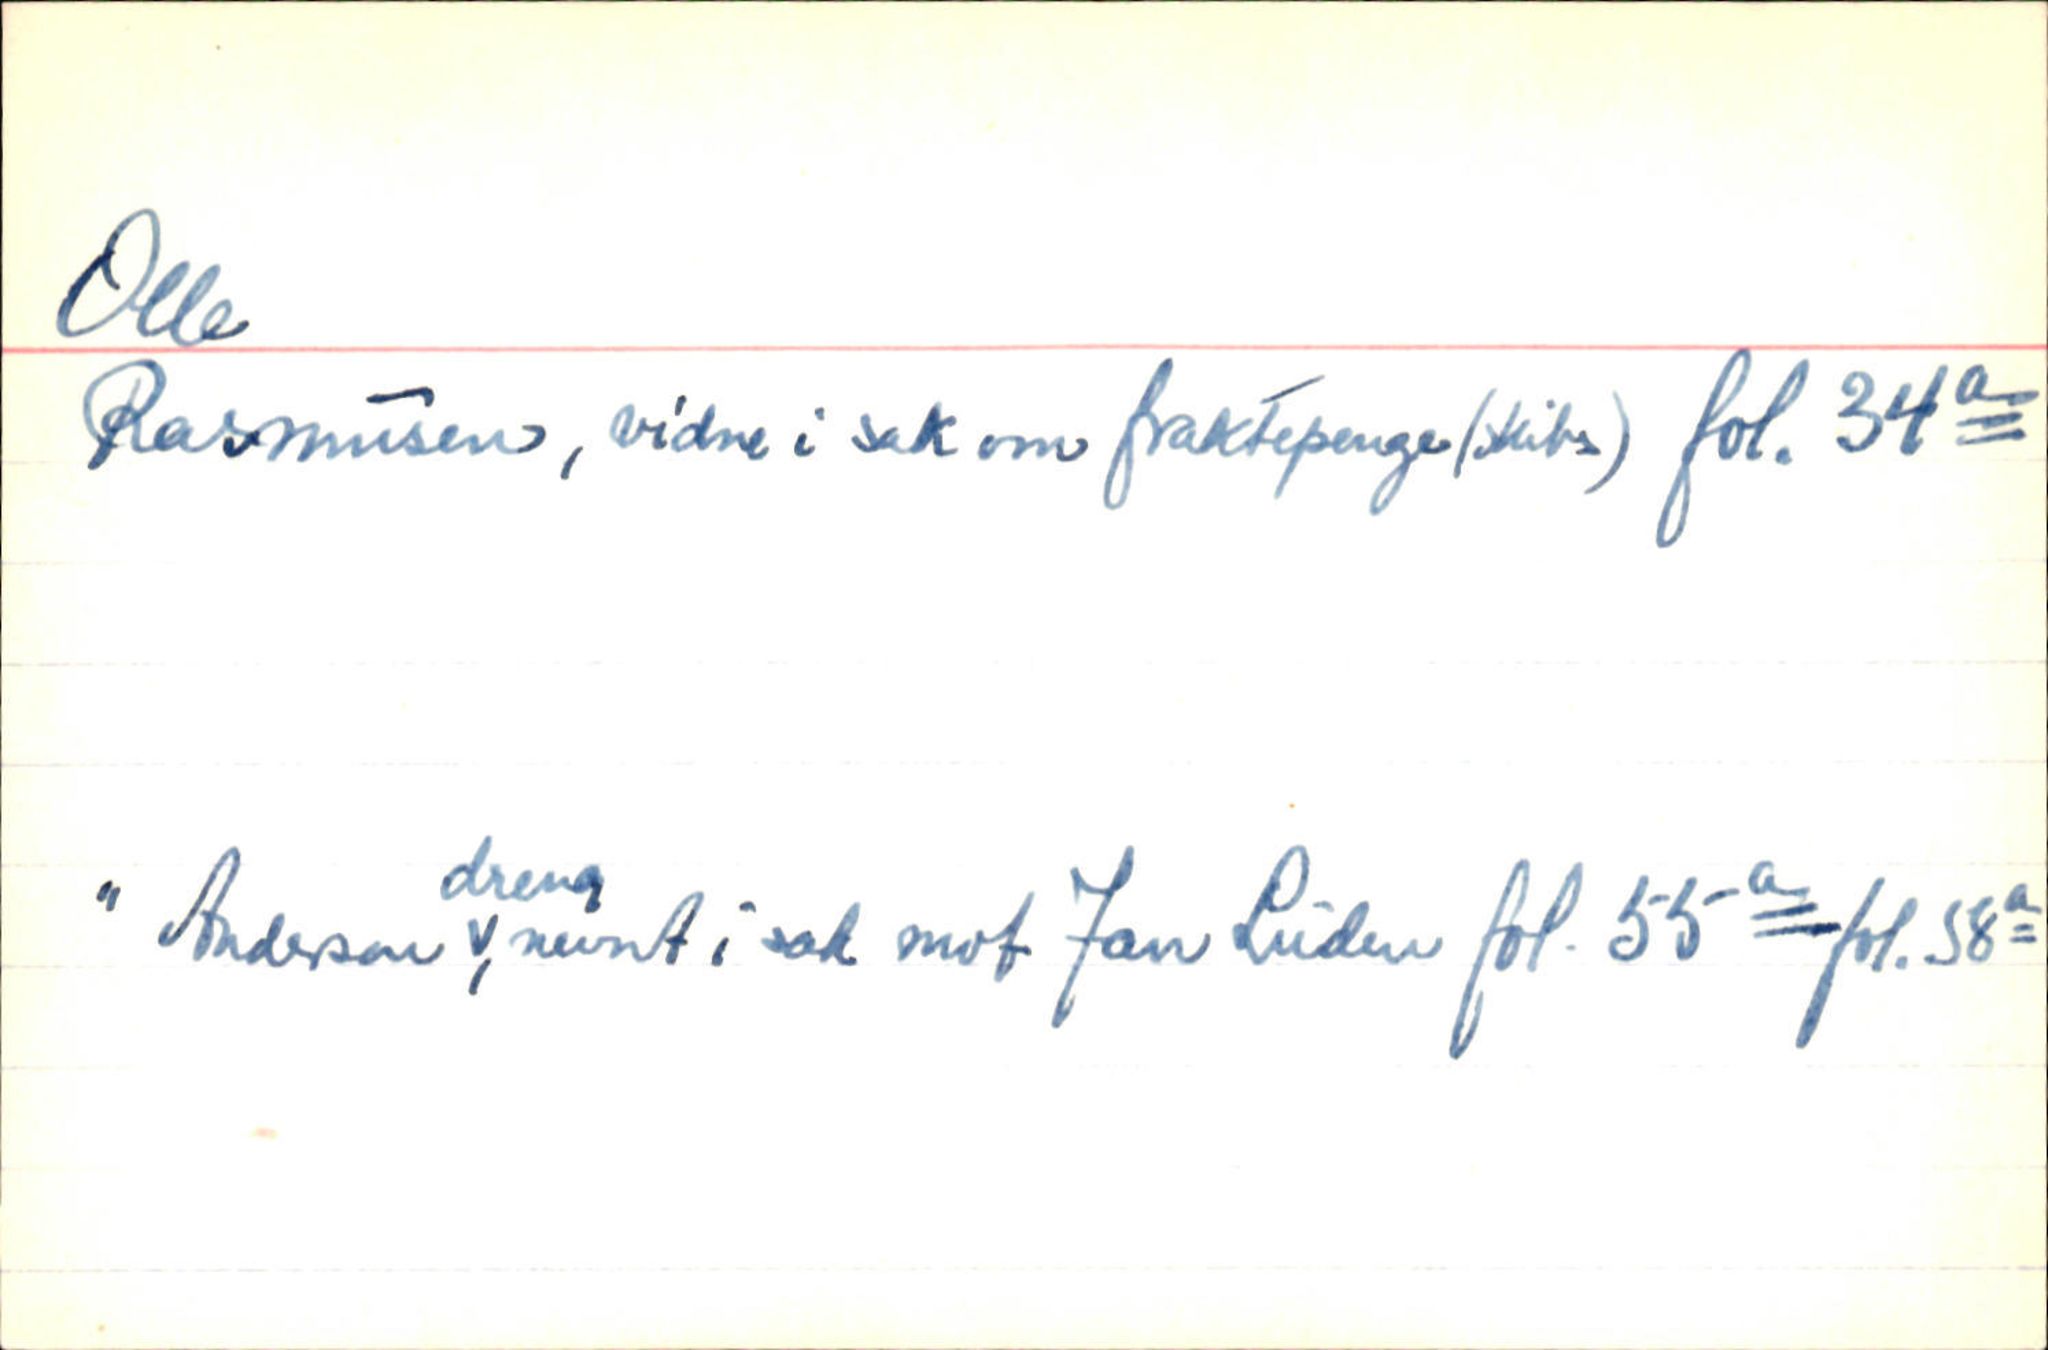 Olle
Rasmusen, vidne i sak om fraktepenge (skibs) fol. 34a
" Anderson dreng, nevnt i sak mot Jan Lüden fol. 55a - fol. 58a